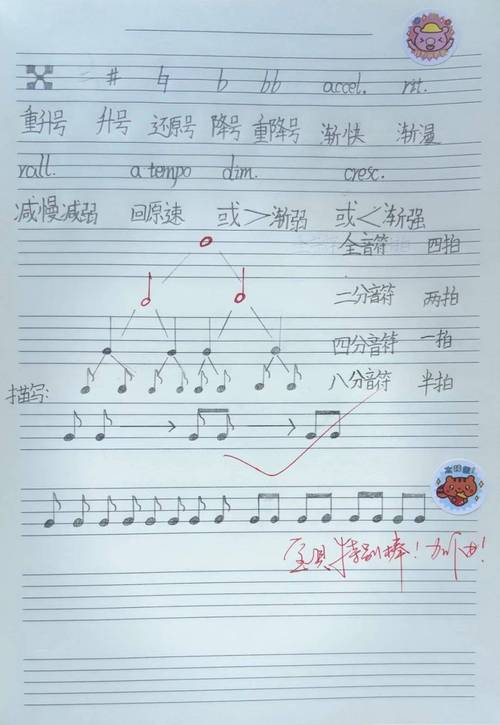 ♯ ♮ b bb accel. rit.
重升号 升号 还原号 降号 重降号 渐快 渐漫
rall. a tempo dim. cresc.
减慢减弱 回原速 或>渐弱 或<渐强
全音符 四拍
二分音符 两拍
四分音符 一拍
八分音符 半拍
描写:
宝贝特别棒!加油!